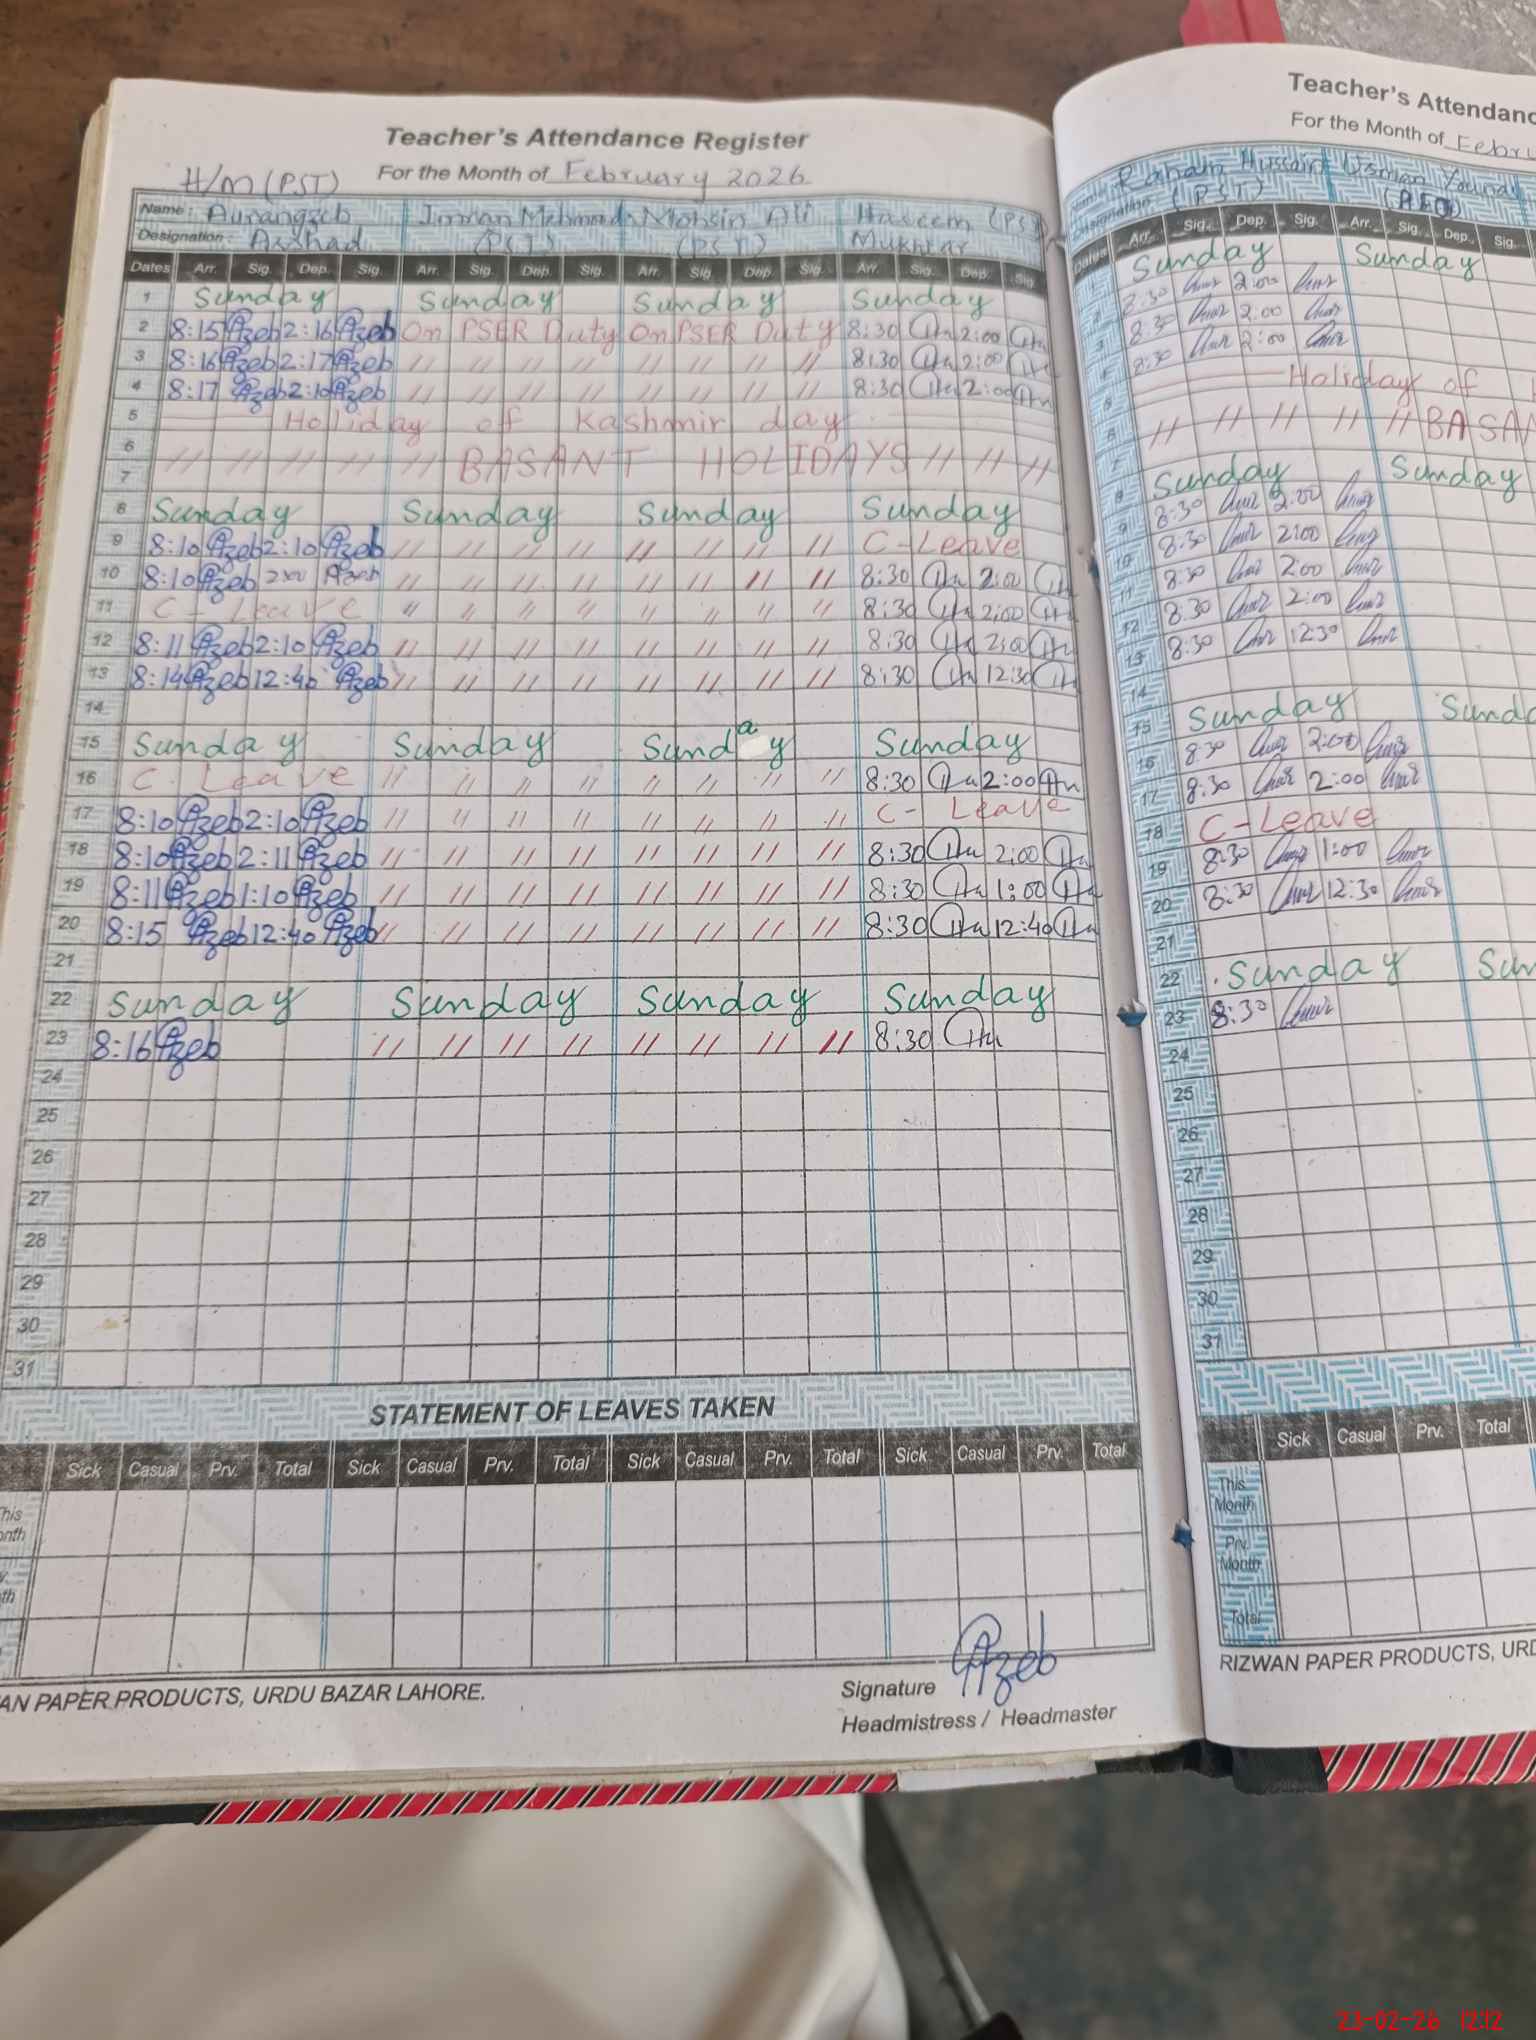 Teacher's Attendance Register
For the Month of February 2026
H/M (PST)
Name: Aurangzeb Imran Mehmood Mohsin Ali Haseem (PST)
Designation: Arshad (PST) (PST) Mukhtar
Dates Arr. Sig. Dep. Sig. Arr. Sig. Dep. Sig. Arr. Sig. Dep. Sig. Arr. Sig. Dep. Sig.
1 Sunday Sunday Sunday Sunday
2 8:15 Azeb 2:16 Azeb On PSER Duty On PSER Duty 8:30 2:00
3 8:16 Azeb 2:17 Azeb // // // // // // // // 8:30 2:00
4 8:17 Azeb 2:10 Azeb // // // // // // // // 8:30 2:00
5 Holiday of Kashmir day
6
7 // // // // // BASANT HOLIDAYS // // //
8 Sunday Sunday Sunday Sunday
9 8:10 Azeb 2:10 Azeb // // // // // // // // C-Leave
10 8:10 Azeb 2:00 Azeb // // // // // // // // 8:30 2:00
11 C-Leave // // // // // // // // 8:30 2:00
12 8:11 Azeb 2:10 Azeb // // // // // // // // 8:30 2:00
13 8:14 Azeb 12:40 Azeb // // // // // // // // 8:30 12:30
14
15 Sunday Sunday Sunday Sunday
16 C-Leave // // // // // // // // 8:30 2:00
17 8:10 Azeb 2:10 Azeb // // // // // // // // C-Leave
18 8:10 Azeb 2:11 Azeb // // // // // // // // 8:30 2:00
19 8:11 Azeb 1:10 Azeb // // // // // // // // 8:30 1:00
20 8:15 Azeb 12:40 Azeb // // // // // // // // 8:30 12:40
21
22 Sunday Sunday Sunday Sunday
23 8:16 Azeb // // // // // // // // 8:30
24
25
26
27
28
29
30
31
STATEMENT OF LEAVES TAKEN
Sick Casual Prv. Total Sick Casual Prv. Total Sick Casual Prv. Total Sick Casual Prv. Total
his
onth
th
AN PAPER PRODUCTS, URDU BAZAR LAHORE.
Signature Azeb
Headmistress / Headmaster
Teacher's Attendanc
For the Month of Febru
Raham Hussain Usman
(PST) (AEO)
Dates Arr. Sig. Dep. Sig. Arr. Sig. Dep. Sig.
1 Sunday Sunday
8:30 2:00
8:30 2:00
8:30 2:00
Holiday of
// // // // // BASAN
8 Sunday Sunday
9 8:30 2:00
10 8:30 2:00
11 8:30 2:00
12 8:30 2:00
13 8:30 12:30
14
15 Sunday Sund
16 8:30 2:00
17 8:30 2:00
18 C-Leave
19 8:30 1:00
20 8:30 12:30
21
22 Sunday Sun
23 8:30
24
25
26
27
28
29
30
31
Sick Casual Prv. Total
This
Month
Prv.
Month
Total
RIZWAN PAPER PRODUCTS, URD
23-02-26 12:12